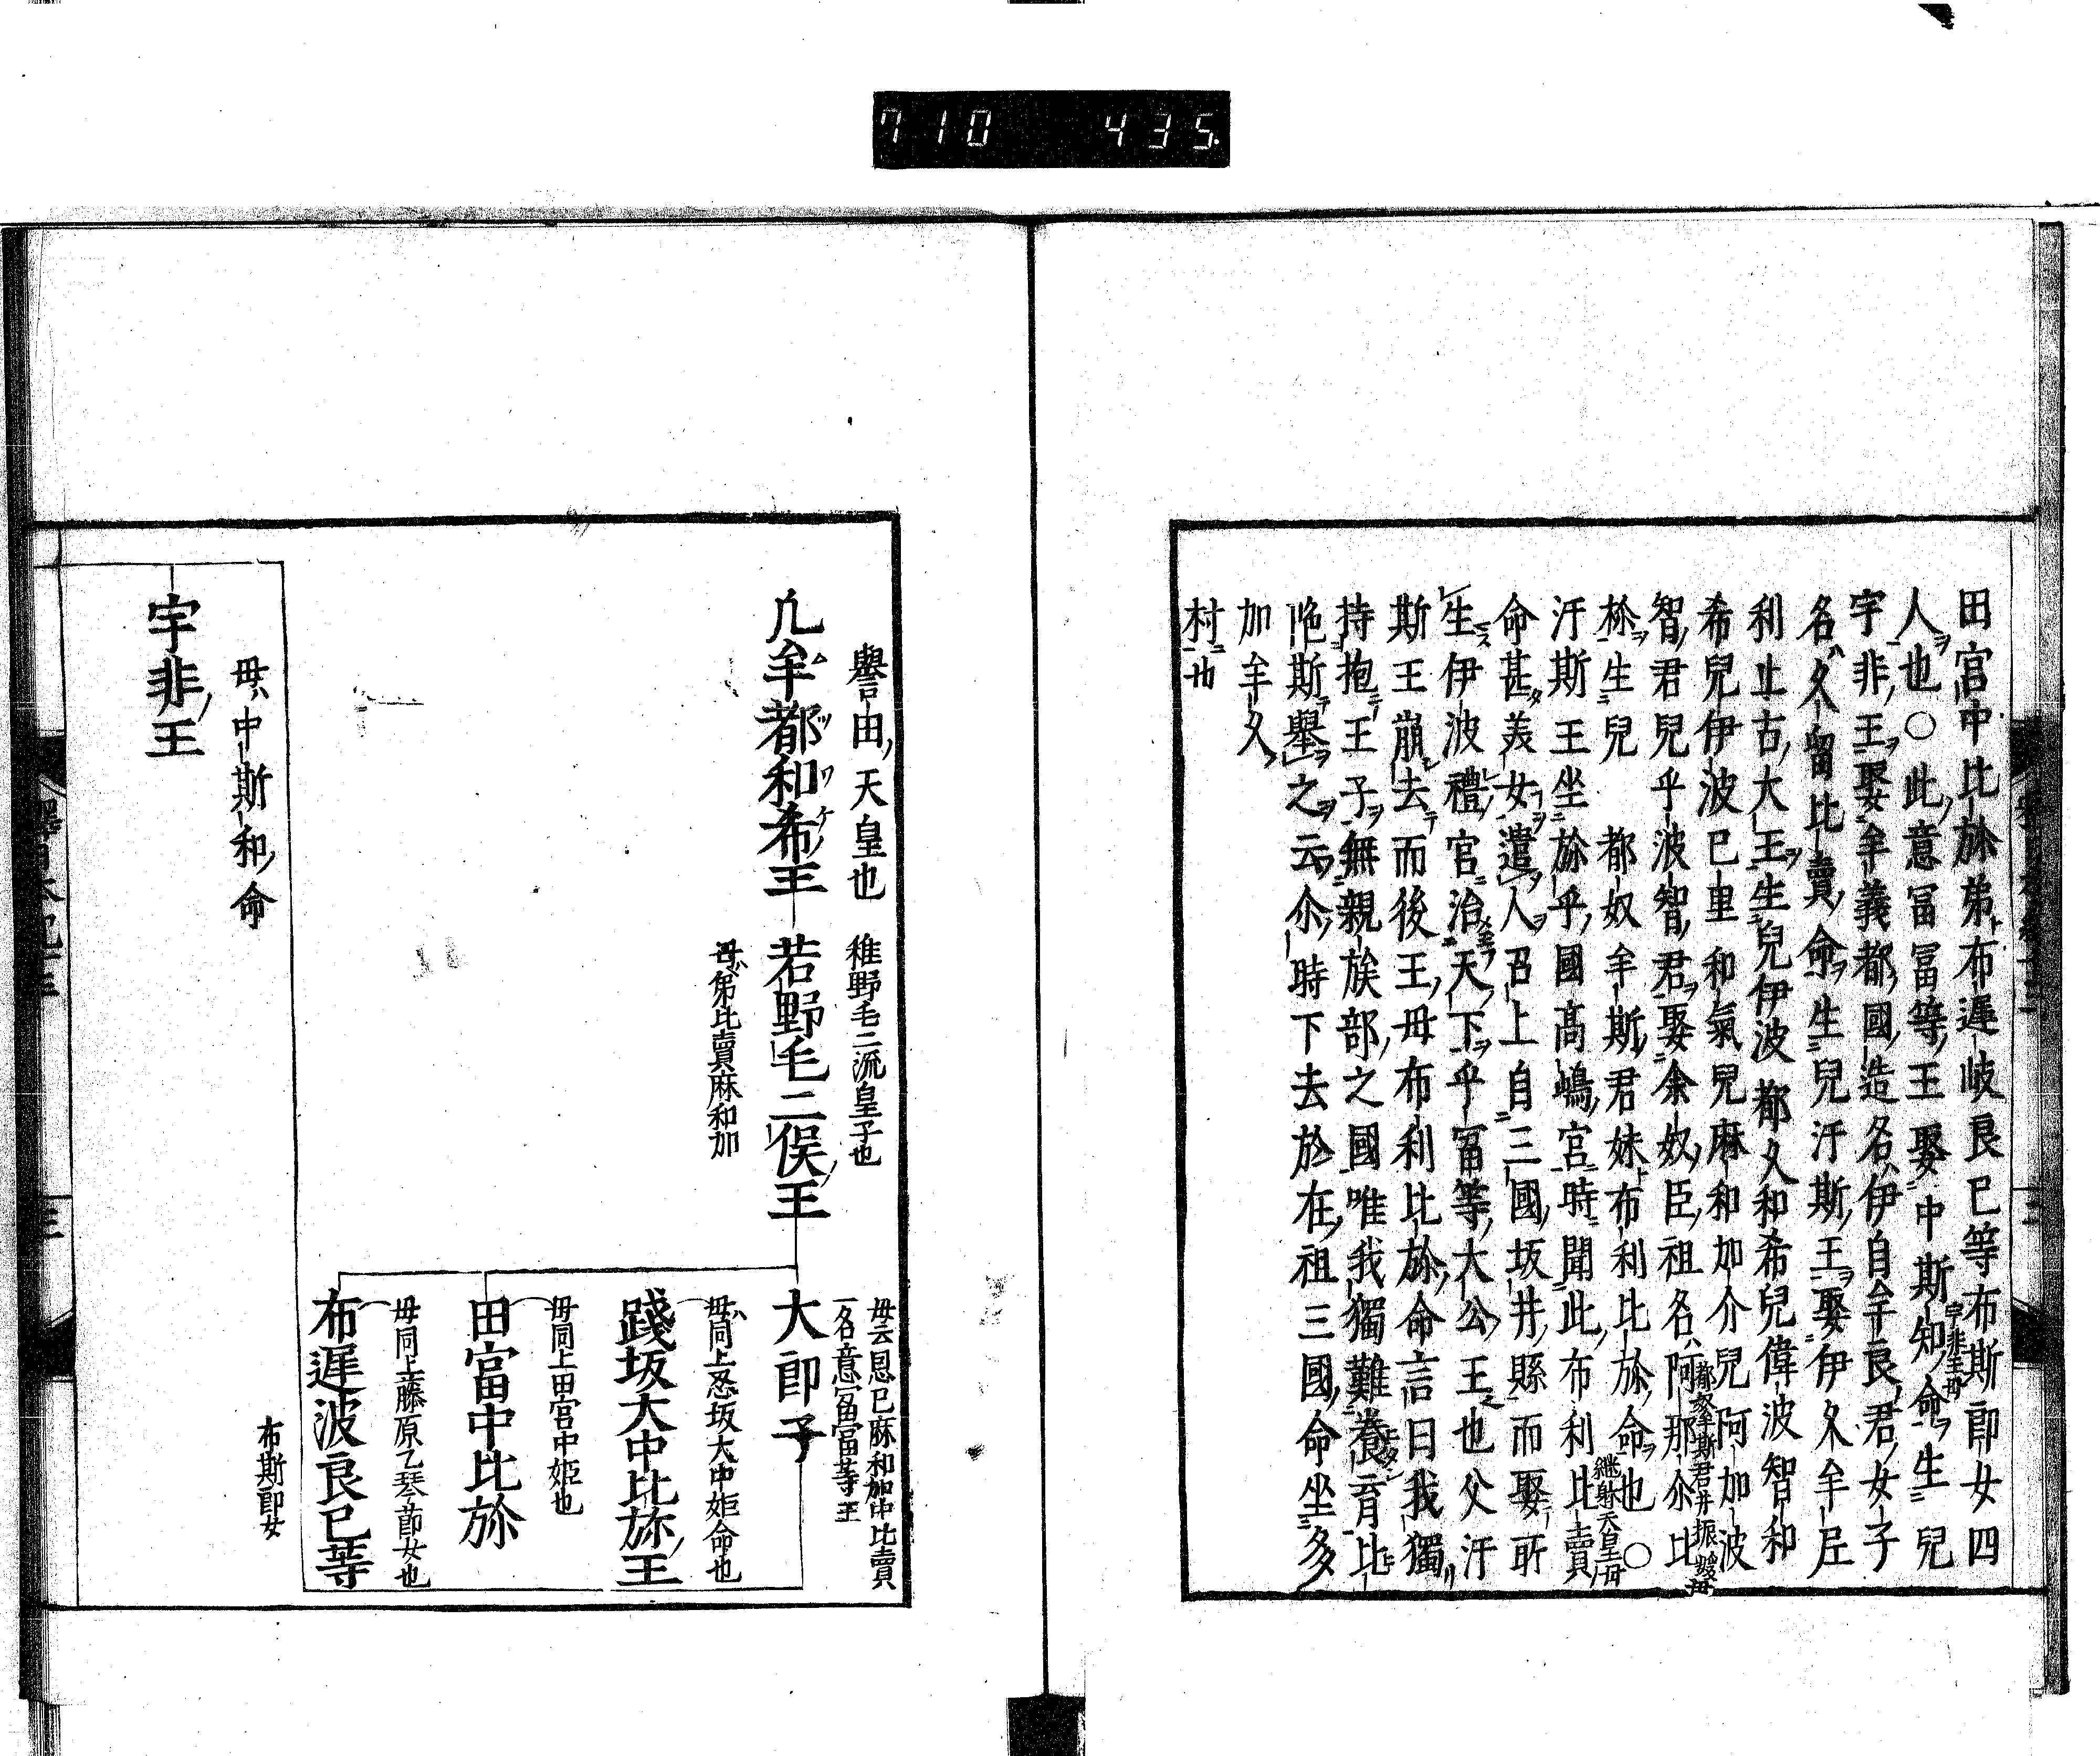 710 435.
田宮中比弥弟布遲岐良已等布斯郎女四
人也○此意冨冨等王娶中斯知命生兒
宇非王母
宇非王娶牟義都國造名伊自牟良君女子
名久留比賣命生兒汙斯王娶伊久牟尼
利比古大王生兒伊波都久和希兒偉波智和
希兒伊波已里和氣兒麻和加介兒阿加波
智君兒乎波智君娶余奴臣祖名阿那尒比
弥生兒都奴牟斯君妹布利比弥命也○
都奴牟斯君并振媛母
継躰天皇母
汙斯王坐弥乎國高嶋宮時聞此布利比賣
命甚美女遣人召上自三國坂井縣而娶所
生伊波禮宮治天下乎冨等大公王也父汙
斯王崩去而後王母布利比弥命言曰我獨
持抱王子無親族部之國唯我獨難養育比
陁斯擧之云尒時下去於在祖三國命坐多
加牟久
村也
譽田天皇也
凡牟都和希王
稚野毛二流皇子也
若野毛二俣王
母弟比賣麻和加
母云恩已麻和加中比賣
一名意冨冨等王
大郎子
母同上忍坂大中姫命也
踐坂大中比弥王
母同上田宮中姫也
田宮中比弥
母同上藤原乙琴節女也
布遲波良已等
布斯郎女
母中斯和命
宇非王
釋日本紀十三
三